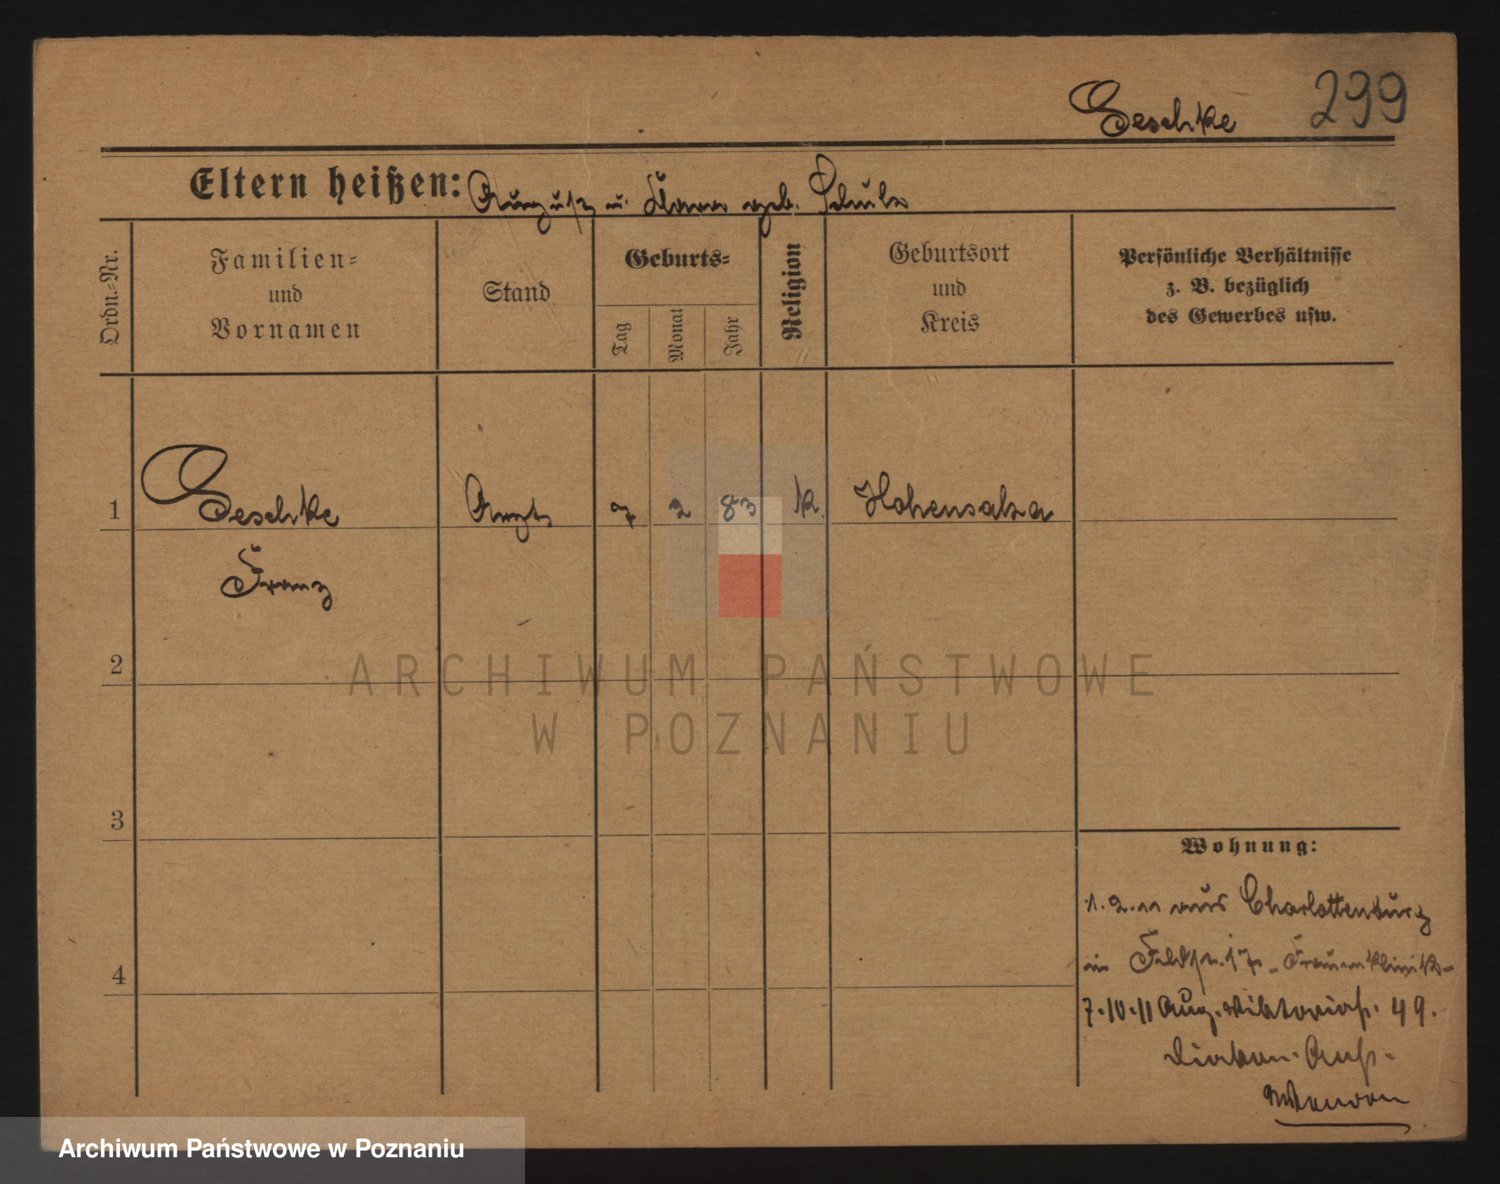 Geschke 299
Eltern heißen: August u. Klara geb. Schulz
Ordn.-Nr.
Familien-
und
Vornamen
Stand
Geburts-
Tag
Monat
Jahr
Religion
Geburtsort
und
Kreis
Persönliche Verhältnisse
z. B. bezüglich
des Gewerbes usw.
1 Geschke Arzt 7 2 83 k. Hohensalza
Franz
2
3
4
Wohnung:
1.2.11 aus Charlottenburg
in 17 - Frauenklinik -
7.10.11 Aug. Viktoriastr. 49.
Diakon. Anst.
ARCHIWUM PAŃSTWOWE
W POZNANIU
Archiwum Państwowe w Poznaniu